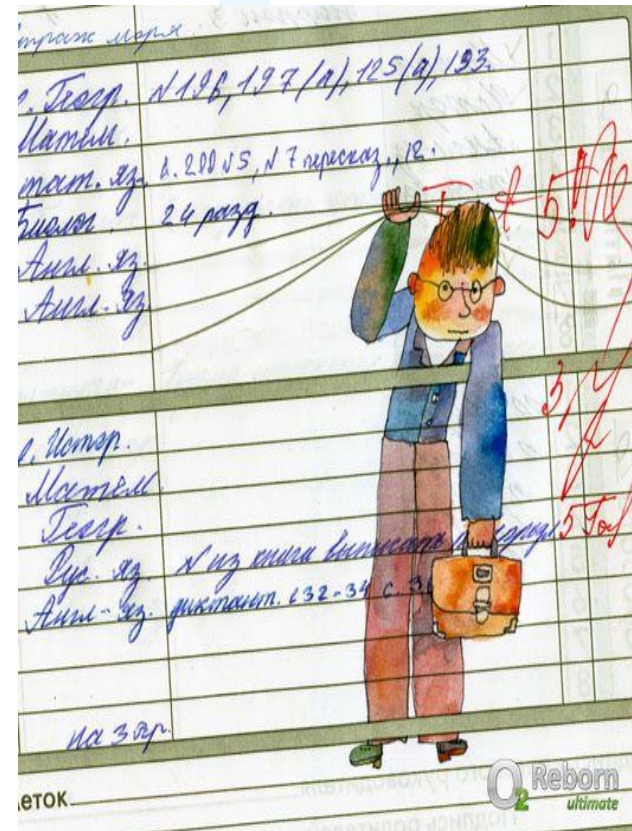 страж моря.
Геогр. N 196, 197 (а), 125 (а), 193.
Матем.
тат. яз. N 7 пересказ., 12.
Биолог. 24 разд.
Англ. яз.
Англ. яз
5
3
Истор.
Матем.
Геогр.
Рус. яз. N из книги выписать
5
Англ-яз. диктант. с 32-34 с. 3
на 3 тр.
еток
O2 Reborn
ultimate